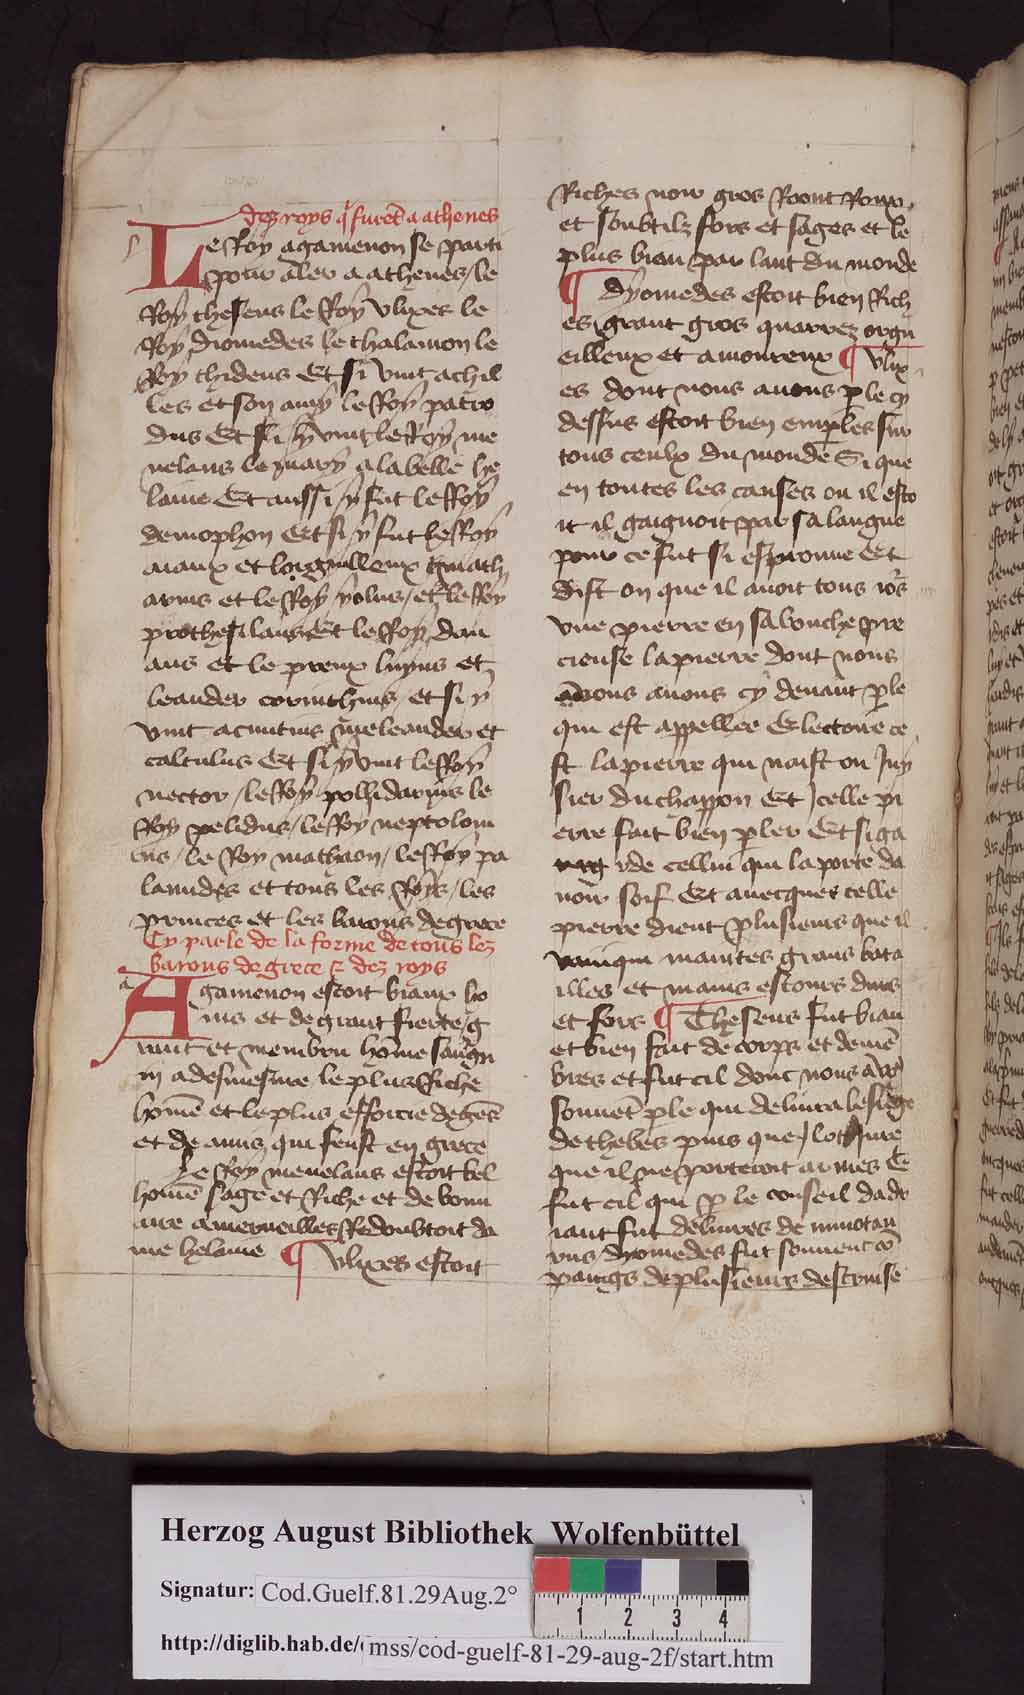 dez roys q̃ furẽt a athenes
Le Roy agamenon se parti
pour aler a athenes / le
Roy theseus le Roy Vlixes le
Roy diomedes le thalamon le
Roy thideus Et si vint achil
les et son amy le Roy patro
clus Et si y vint le Roy me
nelaus le mary a la belle he
laine Et aussi y fut le Roy
demophon Et si y fut le Roy
aiaux et lorguilleux
arius et le Roy / et le Roy
prothesilaus Et le Roy dau
aus et le preux et
leander corinthius et si y
vint acintius meleander et
calculus Et si y vint le Roy
nector / le Roy pollidarius le
Roy pelidus / le Roy neptolom
us / le Roy mathaon / le Roy pa
lamides et tous les Roys / les
princes et les barons de grece
Cy parle de la forme de tous lez
barons de grece & dez roys
Agamenon estoit biaux ho
ms et de grant fierte / g
rant et membru hõme
in a desmesure le plus Riche
homẽ et le plus efforcie de gẽs
et de amis qui feust en grece
Le Roy menelaus estoit bel
homẽ sage et Riche et de bonn
aire a merueilles Redoubtoit da
me helaine ¶ Vlixes estoit
Riches noir gros Roont Roux
et soubtilz fors et sages et le
plus bien parlant du monde
¶ dyomedes estoit bien Rich
es grant gros quarrez orgu
eilleux et amoureux ¶ vlix
es dont nous auons ple cy
dessus estoit bien emples sur
tous ceulx du monde Si que
en toutes les causes ou il esto
it il gaignoit par sa langue
pour ce fut si esprouue Et
dist on que il auoit tous iors
vne pierre en sa bouche pre
cieuse la pierre dont nous
auons cy deuant ple
qui est appellee Electoire ce
st la pierre qui naist ou Juy
sier du chappon Et Jcelle pi
erre fait bien pler Et si ga
rde cellui qui la porte da
uoir soif Et auecques celle
pierre dient plusieurs que il
vainqui maintes grans bata
illes et mains estours durs
et fors ¶ Theseus fut biau
et bien fait de corps et de mẽ
bres et fut cil donc nous auõs
souuẽt ple qui deliura le siege
de thebes puis que Jlot Jure
que il ne porteroit armes Ce
fut cil qui p le conseil dadr
iant fut deliures de minotau
rus / dyomedes fut souuent cõ
paings de plusieurs destruise
Herzog August Bibliothek Wolfenbüttel
Signatur: Cod.Guelf.81.29Aug.2°
1 2 3 4
http://diglib.hab.de/ mss/cod-guelf-81-29-aug-2f/start.htm